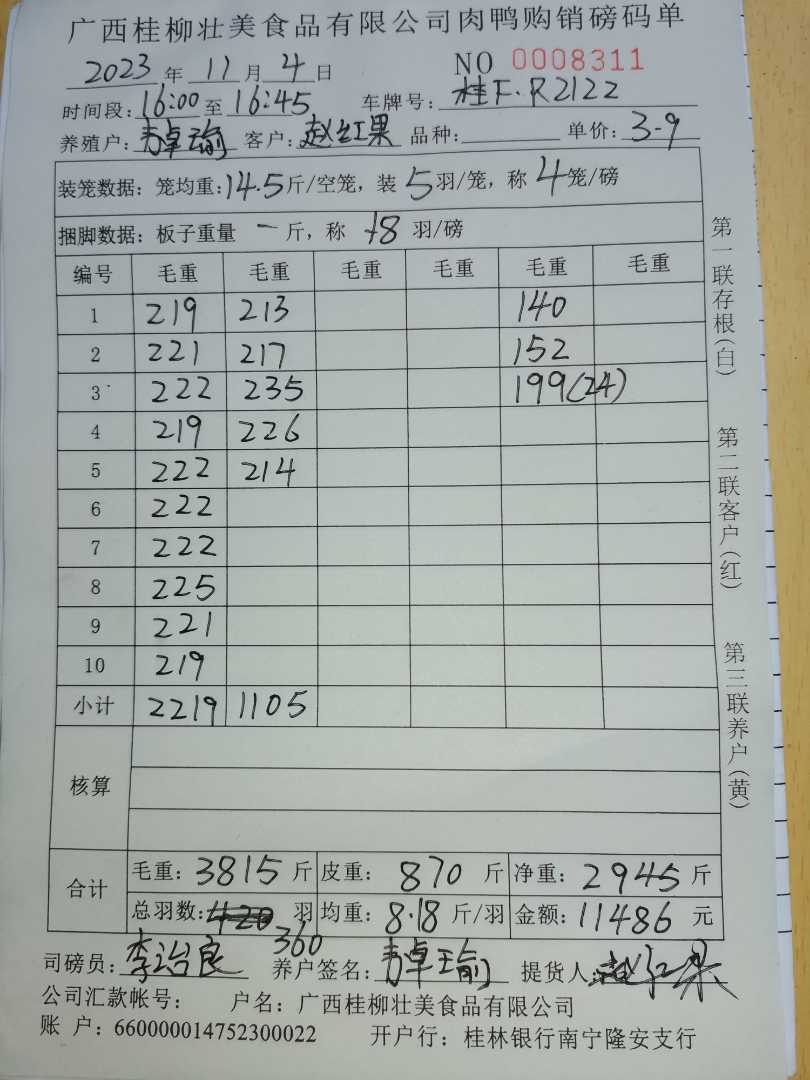 广西桂柳壮美食品有限公司肉鸭购销磅码单
2023 年 11 月 4 日 NO 0008311
时间段: 16:00 至 16:45 车牌号: 桂F·R2122
养殖户: 韦卓瑜 客户: 赵红果 品种: 单价: 3-9
装笼数据: 笼均重: 14.5 斤/空笼, 装 5 羽/笼, 称 4 笼/磅
捆脚数据: 板子重量 一 斤, 称 18 羽/磅
编号 毛重 毛重 毛重 毛重 毛重 毛重
1 219 213 140
2 221 217 152
3 222 235 199(24)
4 219 226
5 222 214
6 222
7 222
8 225
9 221
10 219
小计 2219 1105
核算
合计
毛重: 3815 斤 皮重: 870 斤 净重: 2945 斤
总羽数: 420 羽 均重: 8.18 斤/羽 金额: 11486 元
360
司磅员: 李治良 养户签名: 韦卓瑜 提货人: 赵红果
公司汇款帐号: 户名: 广西桂柳壮美食品有限公司
账 户: 660000014752300022 开户行: 桂林银行南宁隆安支行
第一联存根(白)
第二联客户(红)
第三联养户(黄)